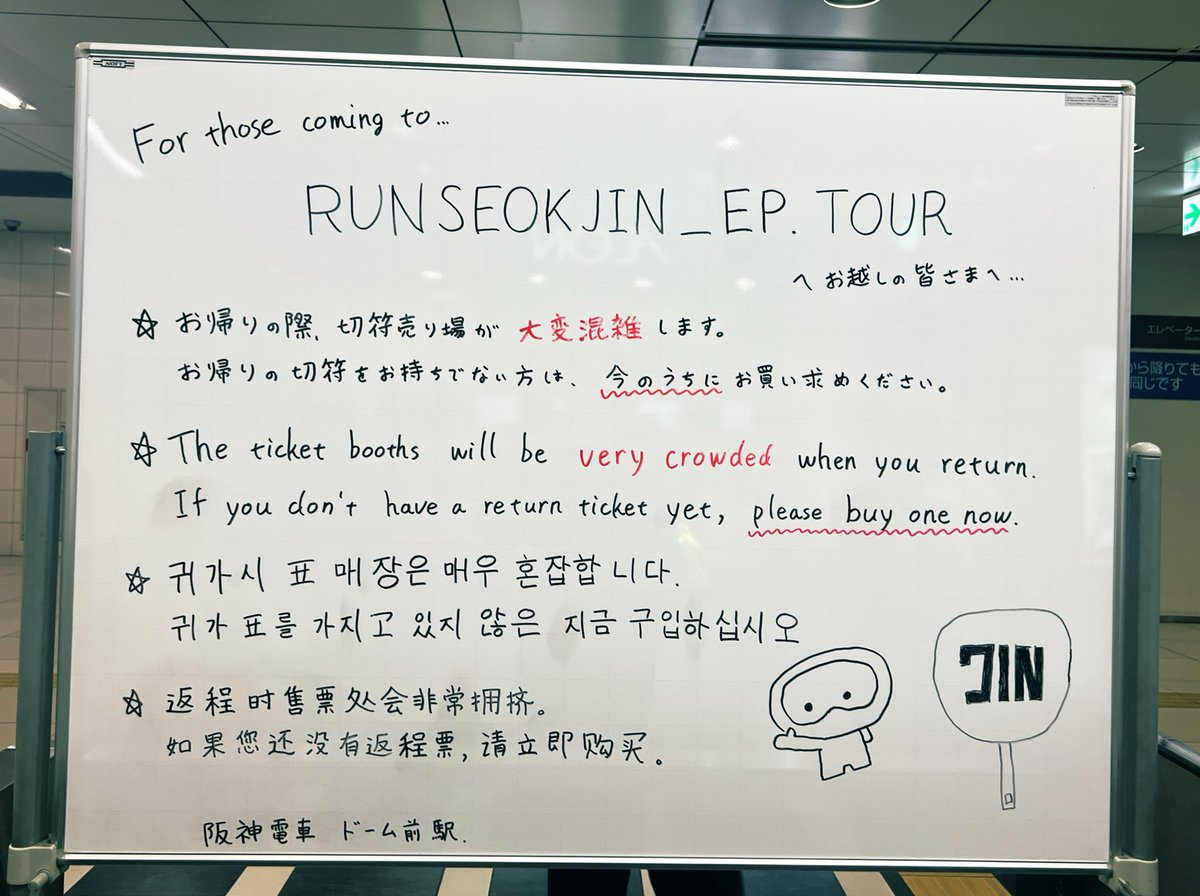 For those coming to...
RUNSEOKJIN_EP. TOUR
へお越しの皆さまへ...
☆ お帰りの際、切符売り場が 大変混雑 します。
お帰りの切符をお持ちでない方は、今のうちに お買い求めください。
☆ The ticket booths will be very crowded when you return.
If you don't have a return ticket yet, please buy one now.
☆ 귀가시 표 매장은 매우 혼잡합니다.
귀가 표를 가지고 있지 않은 지금 구입하십시오
☆ 返程时售票处会非常拥挤。
如果您还没有返程票,请立即购买。
JIN
阪神電車 ドーム前駅.
LION
エレベーター
から降りても
同じです